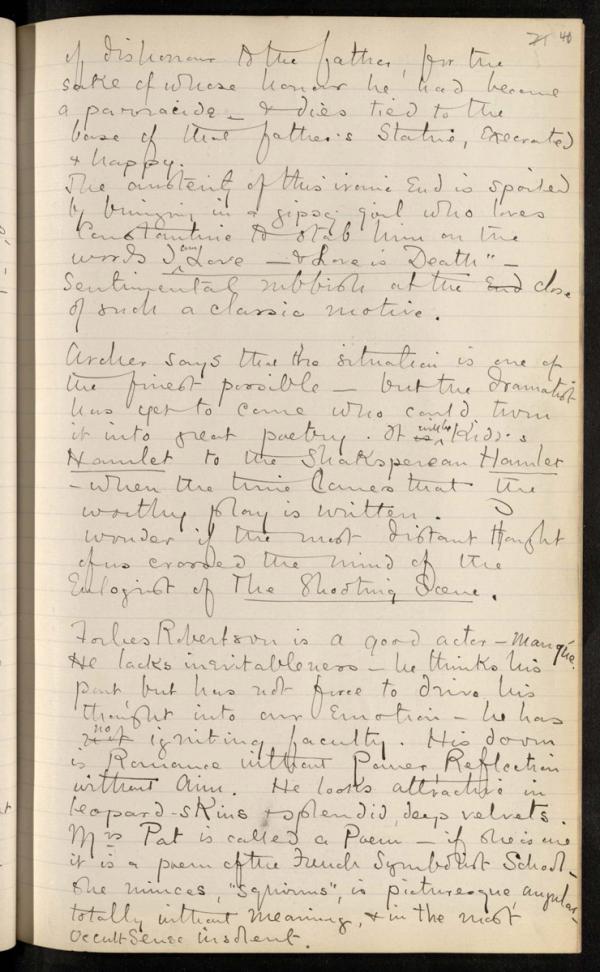 21 40
of dishonour to the father, for the
sake of whose honour he had become
a parracide – & dies tied to the
base of that father's Statue, Execrated
& happy.
The austerity of this ironic End is spoiled
by bringing in a gipsy girl who loves
Constantine to stab him on the
words "I am Love – & Love is Death" –
Sentimental rubbish at the End close
of such a classic motive.
Archer says that the situation is one of
the finest possible – but the dramatist
has yet to come who could turn
it into great poetry. It is will be Kidd's
Hamlet to the Shaksperean Hamlet
– when the time comes that the
worthy play is written. I
wonder if the most distant thought
of us crossed the mind of the
Eulogist of The Shooting Scene.
Forbes Robertson is a good actor – manqué.
He lacks inevitableness – he thinks his
part, but has not force to drive his
thought into our Emotion – he has
not no igniting faculty. His doom
is Romance without Power, Reflection
without Aim. He looks attractive in
leopard-skins & splendid, deep velvets.
Mrs Pat is called a Poem – if she is one
it is a poem of the French Symbolist School –
she minces, "squirms", is picturesque, angular,
totally without meaning, & in the most
occult Sense insolent.